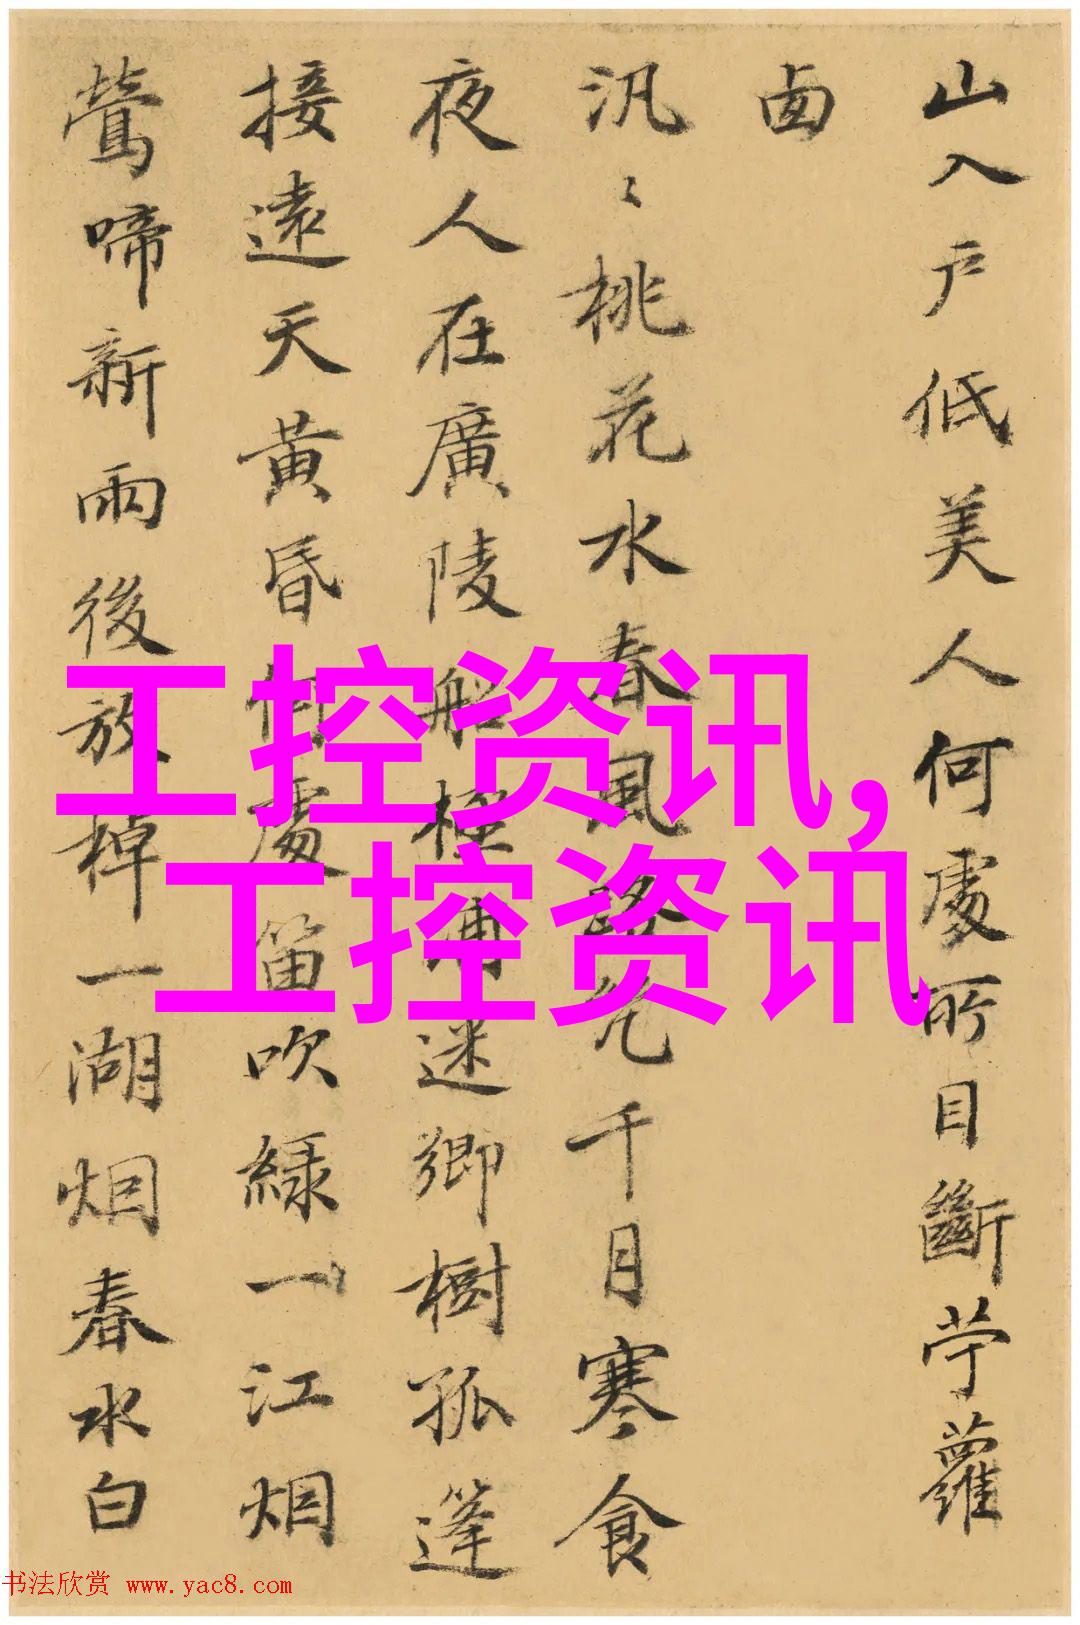 山入戶低美人何處所目斷苧蘿
卥
汎〻桃花水春風路千月寒食
夜人在廣陵船極浦迷鄉樹孤篷
接遠天黃昏何處笛吹綠一江烟
鶯啼新雨後放棹一湖烟春水白
工控资讯,
工控资讯
书法欣赏 www.yac8.com